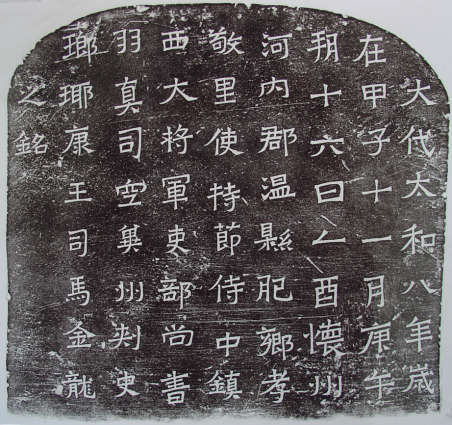 大代太和八年歲
在甲子十一月庚午
朔十六日乙酉懷州
河內郡溫縣肥鄉孝
敬里使持節侍中鎮
西大將軍吏部尚書
羽真司空冀州刺史
瑯瑘康王司馬金龍
之銘